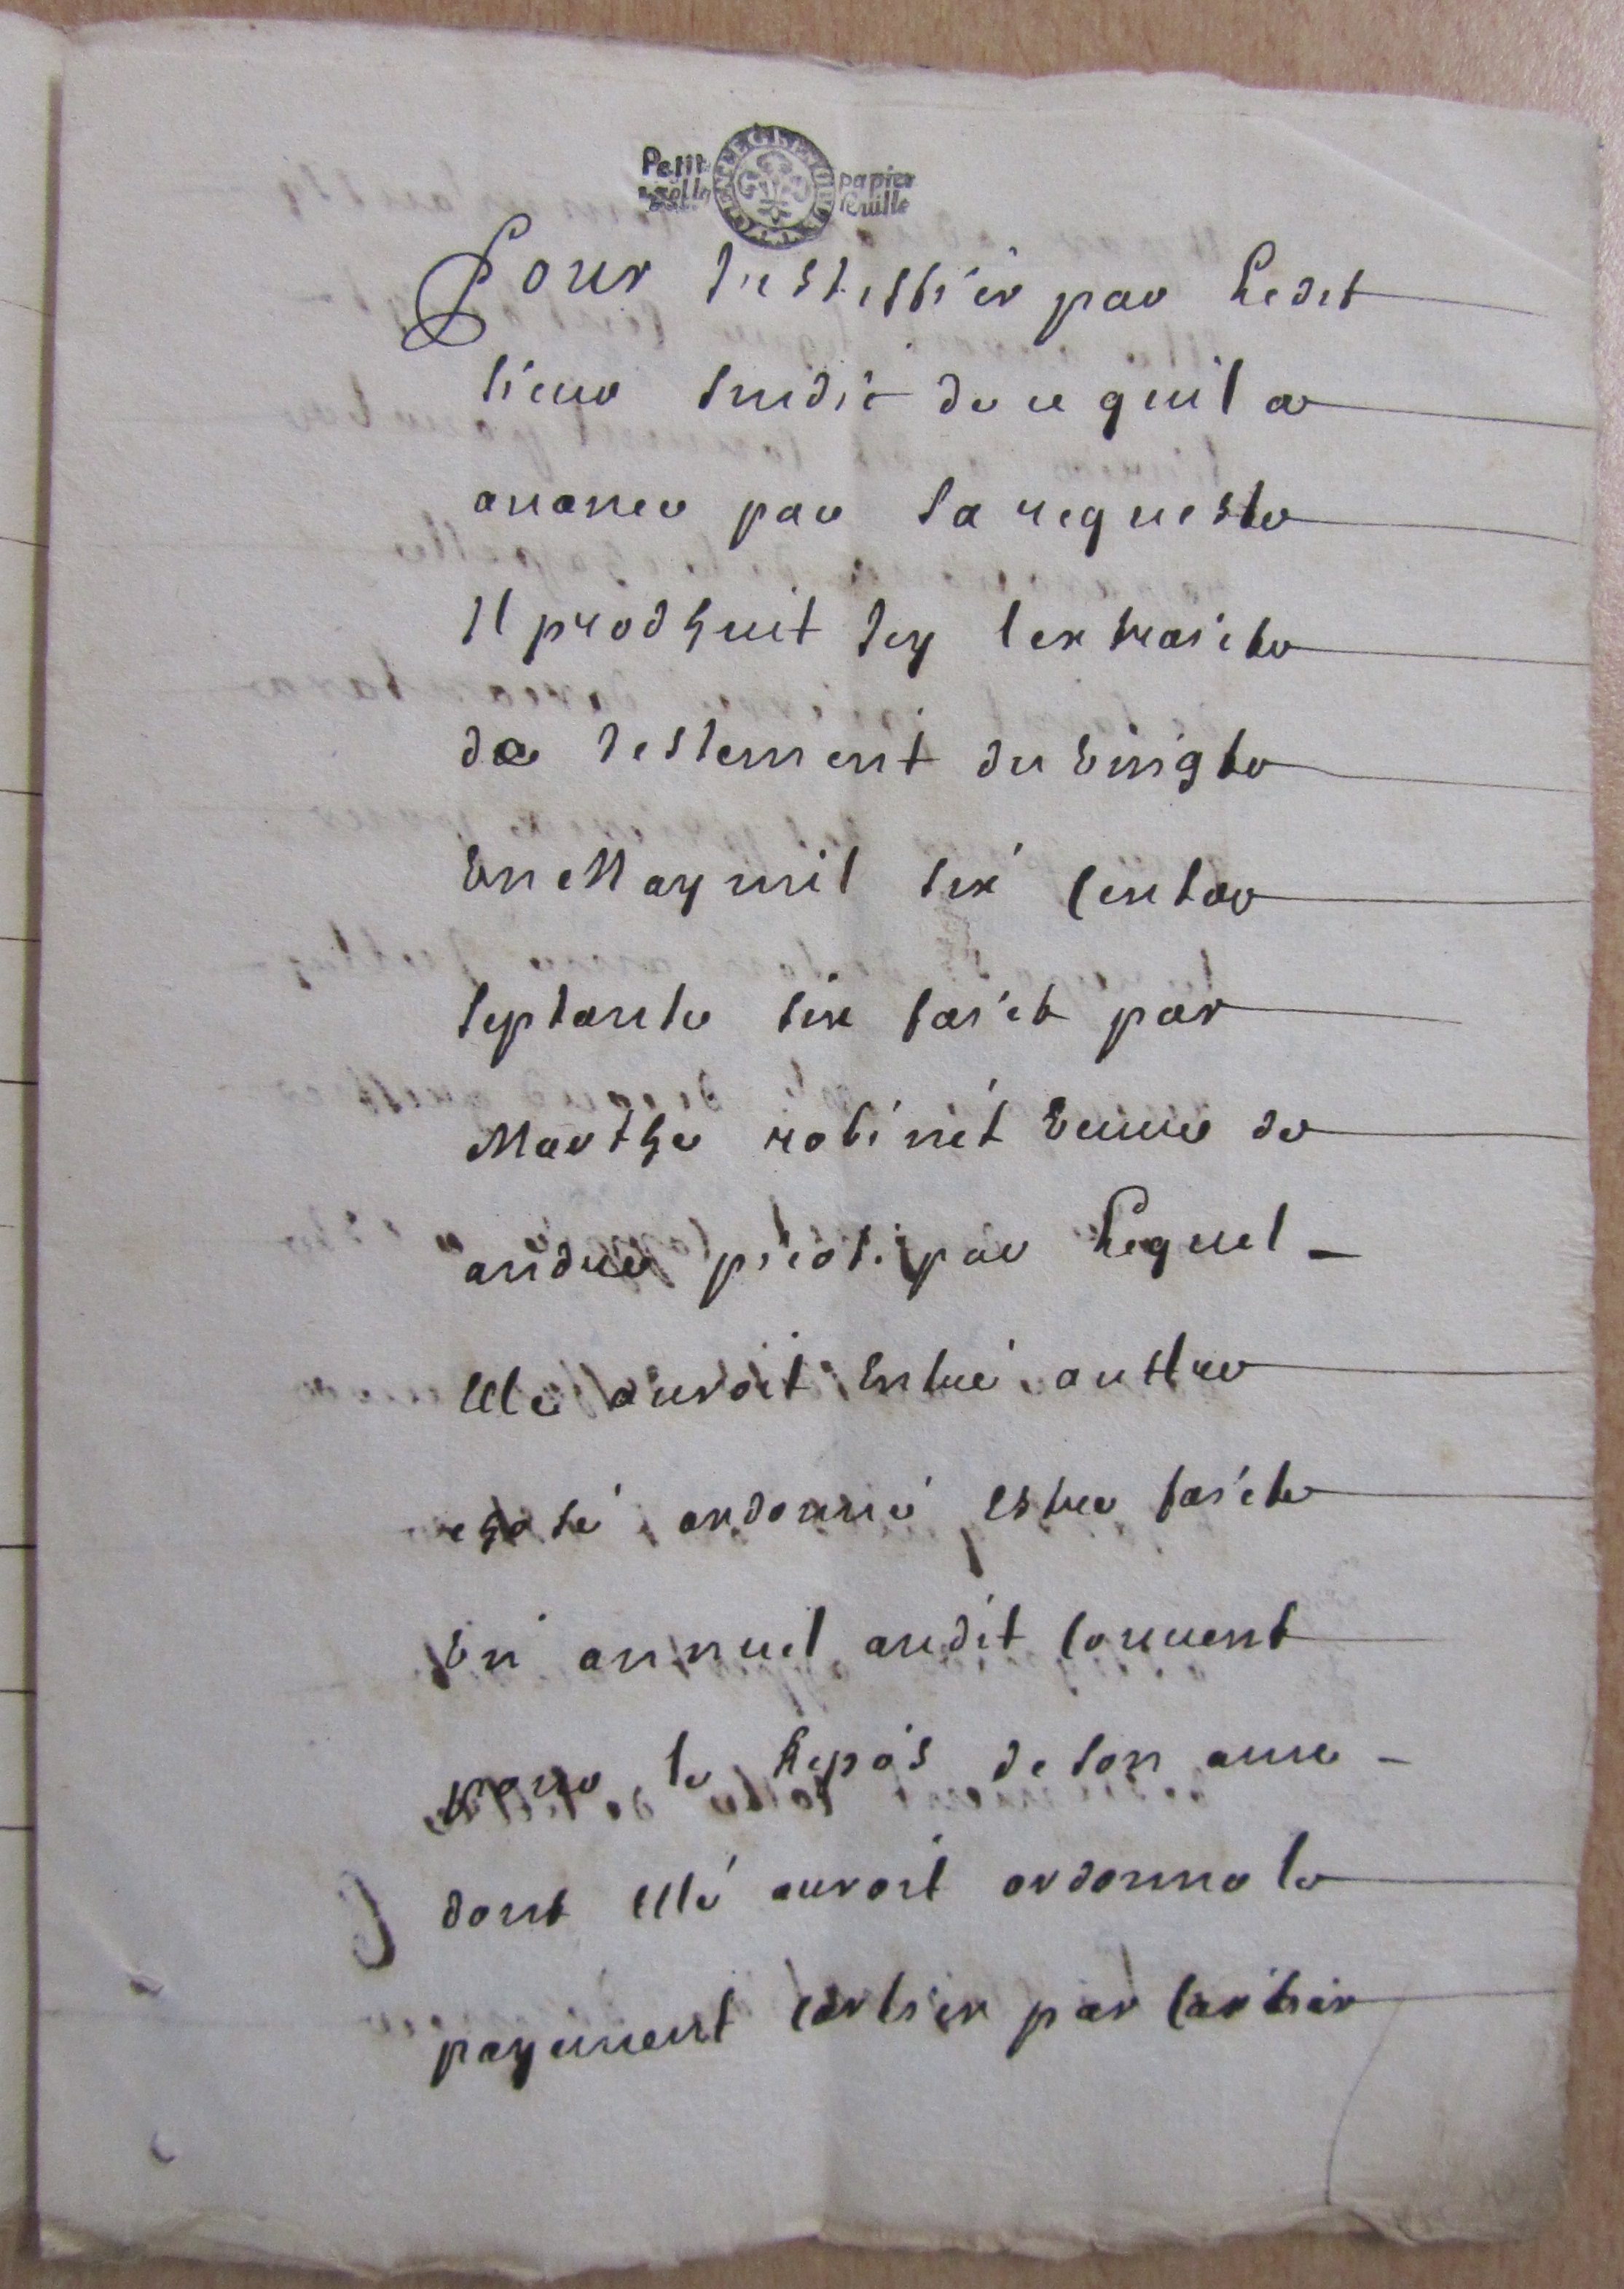 Petit papier
feuille
Pour Justiffier par Ledit
sieur sindic de ce quil a
avancé par sa requeste
Il prodhuit Icy lextraict
de testement du vingt
Un May mil six cent
septante six faict par
Marthe robinet veuve de
andré picot par Lequel
elle auroit entre austre
chose ordonné estre faict
Un annuel audit couvent
pour le Repos de son ame
dont elle auroit ordonné le
payement